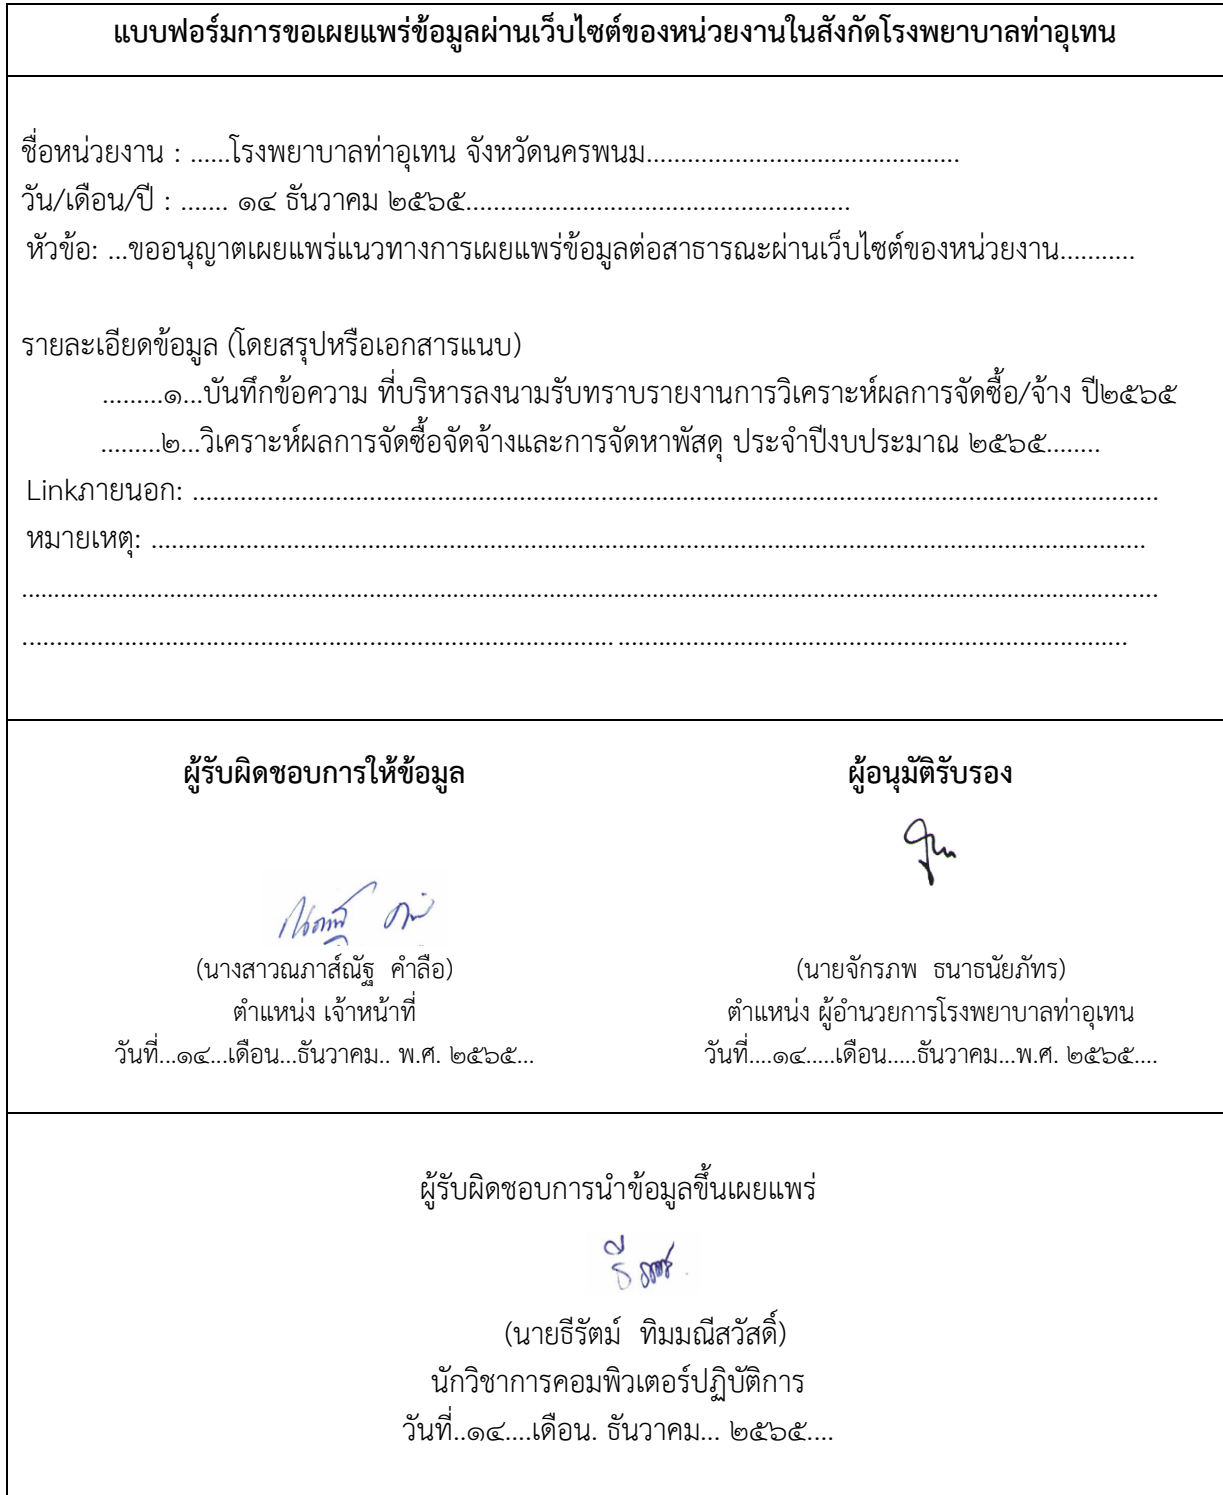 แบบฟอร์มการขอเผยแพร่ข้อมูลผ่านเว็บไซต์ของหน่วยงานในสังกัดโรงพยาบาลท่าอุเทน
ชื่อหน่วยงาน : ......โรงพยาบาลท่าอุเทน จังหวัดนครพนม..............................................
วัน/เดือน/ปี : ....... ๑๔ ธันวาคม ๒๕๖๕.........................................................
หัวข้อ: ...ขออนุญาตเผยแพร่แนวทางการเผยแพร่ข้อมูลต่อสาธารณะผ่านเว็บไซต์ของหน่วยงาน...........
รายละเอียดข้อมูล (โดยสรุปหรือเอกสารแนบ)
.........๑...บันทึกข้อความ ที่บริหารลงนามรับทราบรายงานการวิเคราะห์ผลการจัดซื้อ/จ้าง ปี๒๕๖๕
.........๒...วิเคราะห์ผลการจัดซื้อจัดจ้างและการจัดหาพัสดุ ประจำปีงบประมาณ ๒๕๖๕........
Linkภายนอก: ..............................................................................................................................................
หมายเหตุ: ..................................................................................................................................................
.......................................................................................................................................................................
....................................................................................... ...........................................................................
ผู้รับผิดชอบการให้ข้อมูล ผู้อนุมัติรับรอง
(นางสาวณภาส์ณัฐ คำลือ) (นายจักรภพ ธนาธนัยภัทร)
ตำแหน่ง เจ้าหน้าที่ ตำแหน่ง ผู้อำนวยการโรงพยาบาลท่าอุเทน
วันที่...๑๔...เดือน...ธันวาคม.. พ.ศ. ๒๕๖๕... วันที่....๑๔.....เดือน.....ธันวาคม...พ.ศ. ๒๕๖๕....
ผู้รับผิดชอบการนำข้อมูลขึ้นเผยแพร่
(นายธีรัตม์ ทิมมณีสวัสดิ์)
นักวิชาการคอมพิวเตอร์ปฏิบัติการ
วันที่..๑๔....เดือน. ธันวาคม... ๒๕๖๕....